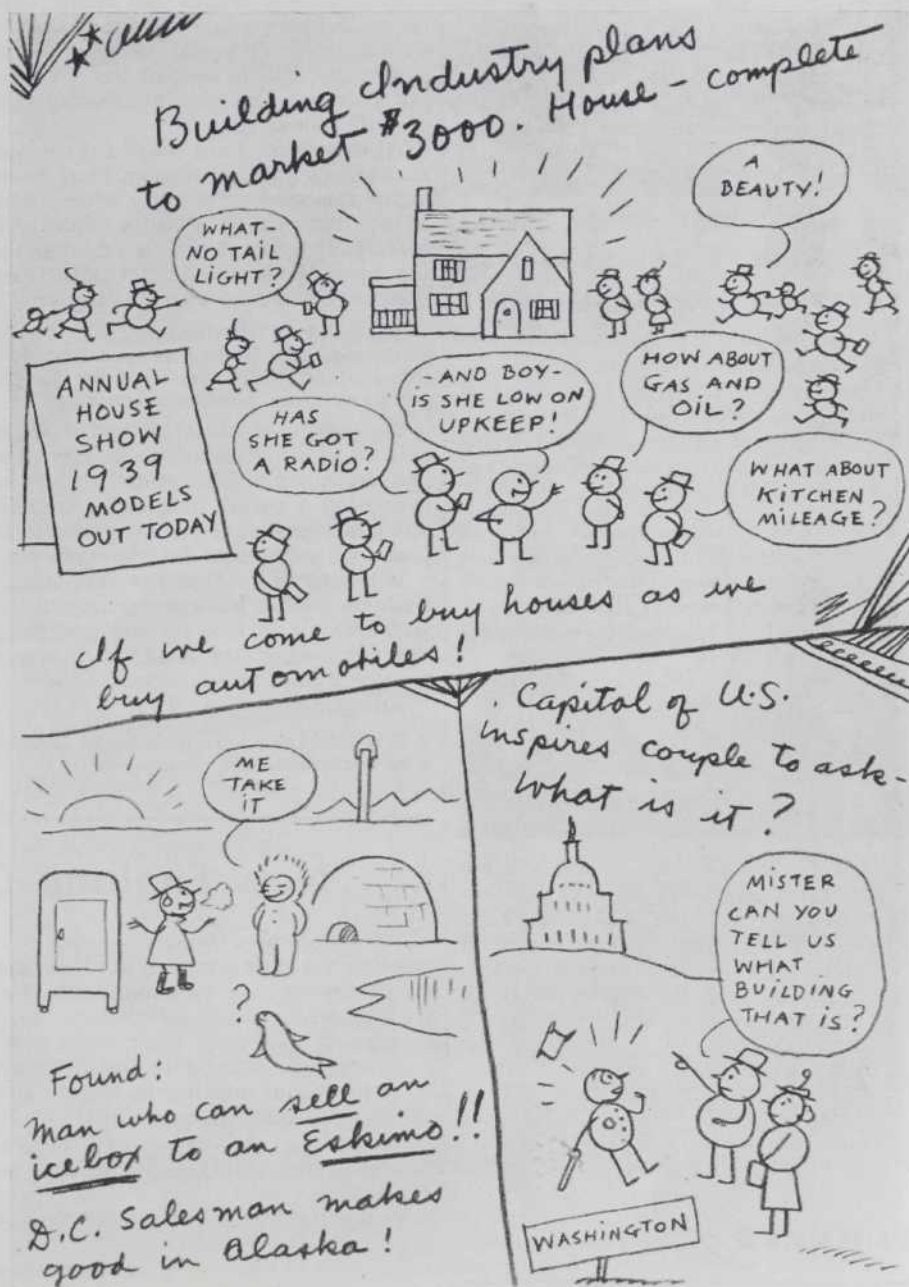 Building Industry plans
to market $3000. House - complete
A
BEAUTY!
WHAT-
NO TAIL
LIGHT?
ANNUAL
HOUSE
SHOW
1939
MODELS
OUT TODAY
HAS
SHE GOT
A RADIO?
- AND BOY -
IS SHE LOW ON
UPKEEP!
HOW ABOUT
GAS AND
OIL?
WHAT ABOUT
KITCHEN
MILEAGE?
If we come to buy houses as we
buy automobiles!
ME
TAKE
IT
?
Found:
Man who can sell an
icebox to an Eskimo!!
D.C. Salesman makes
good in Alaska!
. Capitol of U.S.
inspires couple to ask-
What is it?
MISTER
CAN YOU
TELL US
WHAT
BUILDING
THAT IS?
WASHINGTON